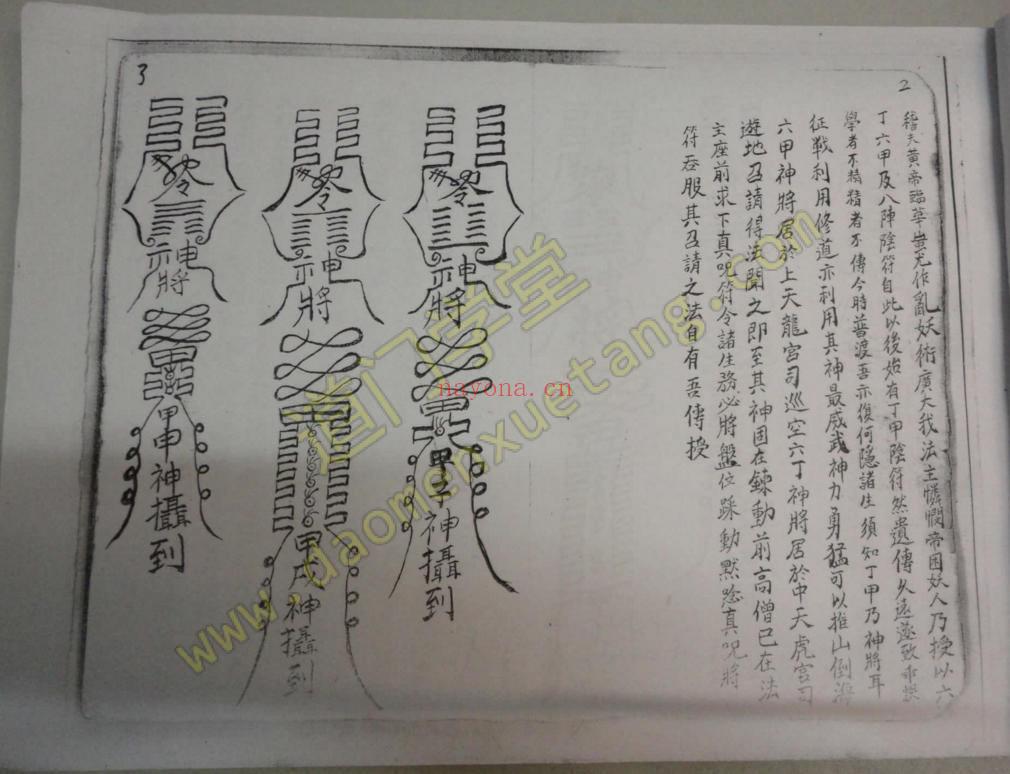 2
稽夫黃帝臨華蚩尤作亂妖術廣大我法主憐憫帝困妖人乃授以六
丁六甲及八陣陰符自此以後始有丁甲陰符然遺傳久遠遂致
學者不精精者不傳今時普渡吾亦復何隱諸生須知丁甲乃神將耳
征戰利用修道亦利用其神最威武神力勇猛可以推山倒海
六甲神將居於上天龍宮司巡空六丁神將居於中天虎宮司
遊地召請得法聞之即至其神固在鍊動前高僧已在法
主座前求下真咒符令諸生務必將盤位踩動默念真咒將
符吞服其召請之法自有吾傳授
3
神將
甲子神攝到
神將
甲戌神攝到
神將
甲申神攝到
道门学堂
www.daomenxuetang.com
nayona.cn